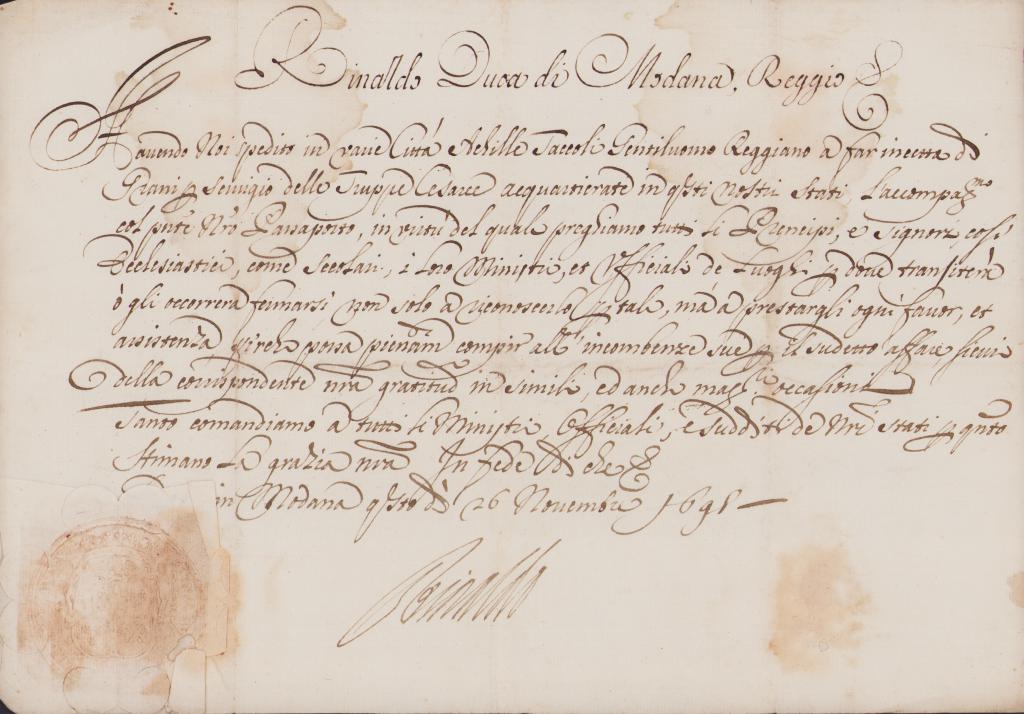 Rinaldo Duca di Modana, Reggio &
Havendo Noi spedito in varie Città Achille Taccoli Gentiluomo Reggiano a far incetta di
Grani p servigio delle Truppe Cesaree acquartierate in qsti nostri Stati, l'accompag.mo
col pnte Nro Passaporto, in virtù del quale preghiamo tutti li Prencipi, e Signori, così
Ecclesiastici, come Secolari, i loro Ministri, et Ufficiali de Luoghi p dove transiterà
ò gli occorrerà fermarsi, non solo a riconoscerlo p tale, mà a prestargli ogni favor, et
assistenza, perche possa pienam compir all' incombenze sue p il sudetto affare, sicuri
della corrispondente nra gratitud in simili, ed anche magg.ri occasioni
Tanto comandiamo a tutti li Ministri Officiali, e Sudditi de Nri Stati p qnto
stimano la grazia nra. In fede di che &
in Modana qsto dì 26 Novembre 1695
Rinaldo